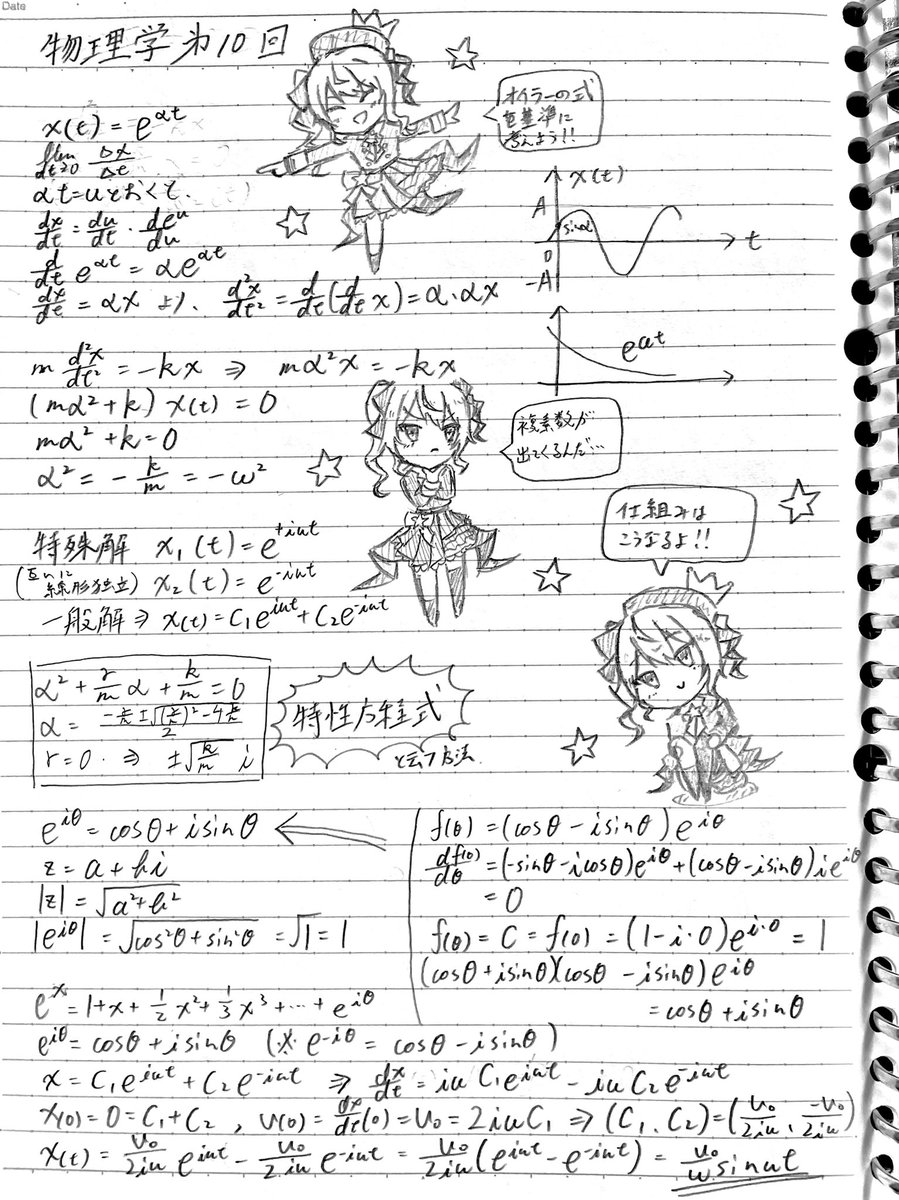 Date
物理学 第10回
オイラーの式
を基準に
考えよう!!
x(t) = e^{αt}
lim_{dt→0} Δx/Δt
αt=uとおくと、
dx/dt = du/dt · de^u/du
d/dt e^{αt} = αe^{αt}
dx/dt = αx より、 d²x/dt² = d/dt(d/dt x) = α·αx
x(t)
A
sinα
0
t
-A
e^{αt}
m d²x/dt² = -kx ⇒ mα²x = -kx
(mα²+k) x(t) = 0
mα²+k=0
α² = -k/m = -ω²
複素数が
出てくるんだ…
仕組みは
こうなるよ!!
特殊解 x₁(t) = e^{+iωt}
(互いに線形独立) x₂(t) = e^{-iωt}
一般解 ⇒ x(t) = C₁e^{iωt} + C₂e^{-iωt}
α² + r/m α + k/m = 0
α = (-r/m ± √((r/m)² - 4k/m))/2
r=0 · ⇒ ±√(k/m) i
特性方程式
と云う方法
e^{iθ} = cosθ + i sinθ
z = a + bi
|z| = √(a²+b²)
|e^{iθ}| = √(cos²θ + sin²θ) = √1 = 1
f(θ) = (cosθ - i sinθ) e^{iθ}
df(θ)/dθ = (-sinθ - i cosθ) e^{iθ} + (cosθ - i sinθ) i e^{iθ}
= 0
f(θ) = C = f(0) = (1 - i·0) e^{i·0} = 1
(cosθ + i sinθ)(cosθ - i sinθ) e^{iθ}
= cosθ + i sinθ
e^x = 1 + x + 1/2 x² + 1/3 x³ + … + e^{iθ}
e^{iθ} = cosθ + i sinθ (※ e^{-iθ} = cosθ - i sinθ)
x = C₁e^{iωt} + C₂e^{-iωt} ⇒ dx/dt = iω C₁e^{iωt} - iω C₂e^{-iωt}
x(0) = 0 = C₁ + C₂ , v(0) = dx/dt(0) = v₀ = 2iωC₁ ⇒ (C₁, C₂) = (v₀/2iω, -v₀/2iω)
x(t) = v₀/2iω e^{iωt} - v₀/2iω e^{-iωt} = v₀/2iω (e^{iωt} - e^{-iωt}) = v₀/ω sinωt